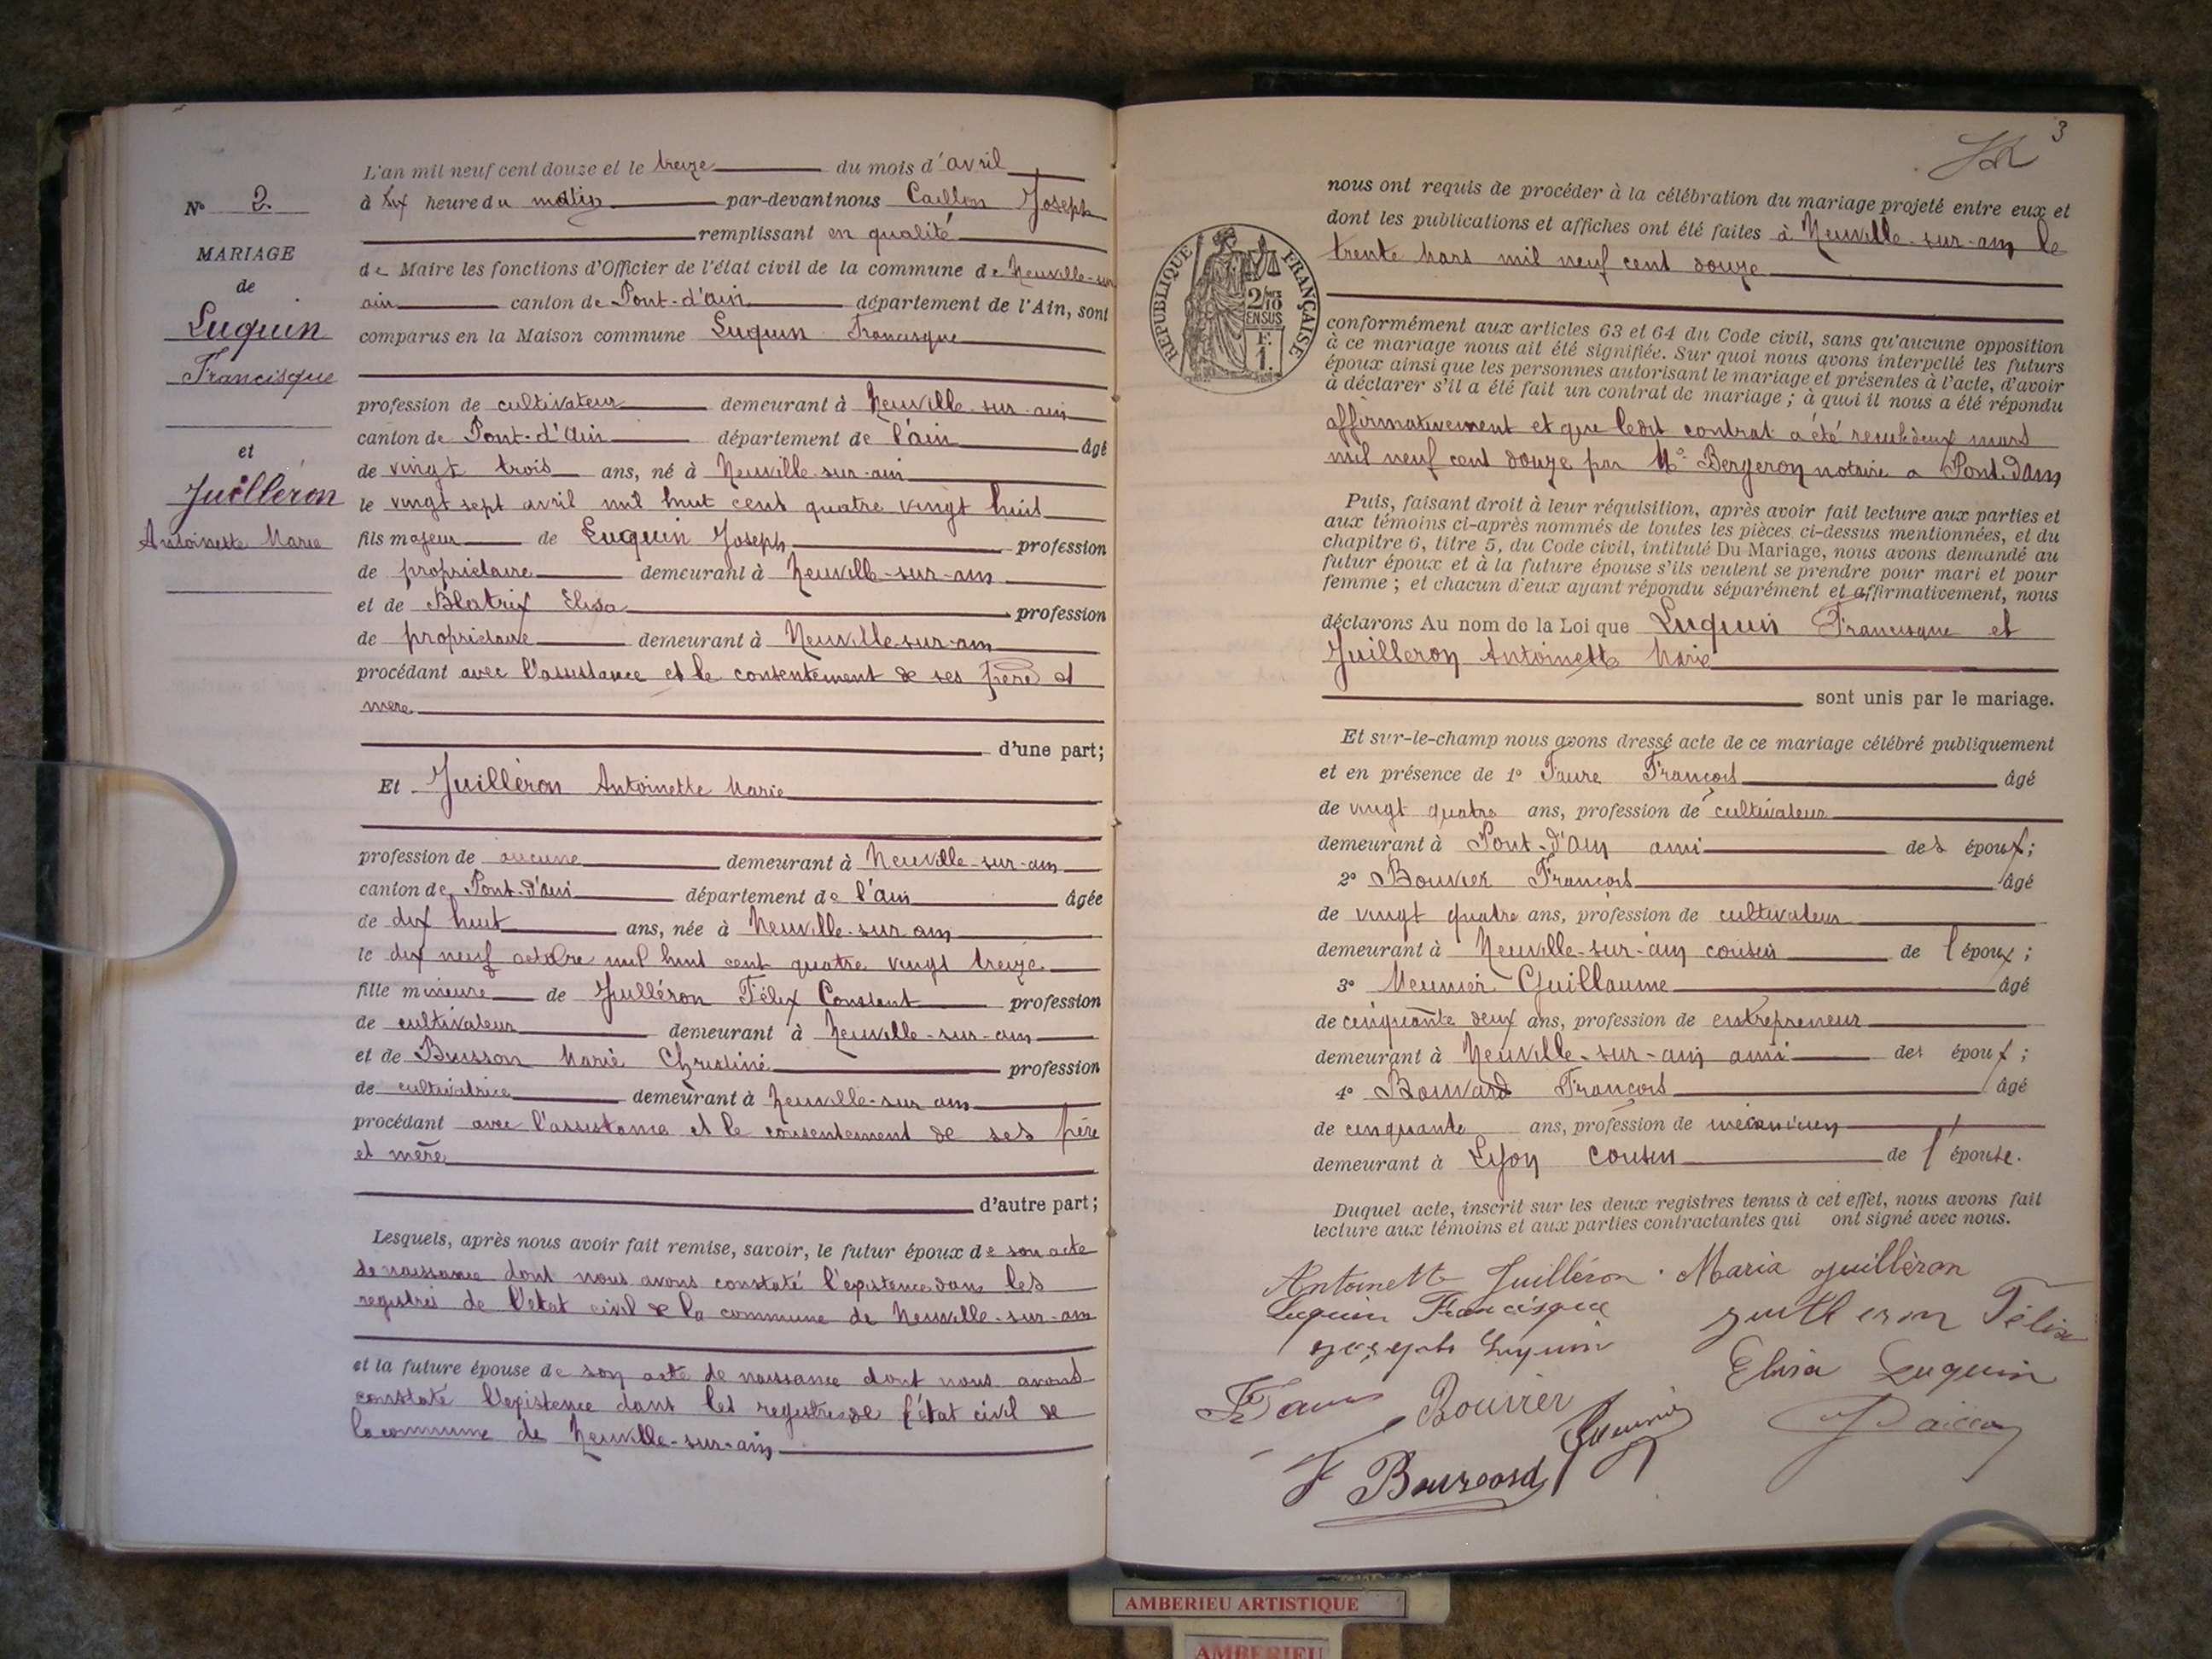 L'an mil neuf cent douze et le treize du mois d'avril
N° 2.
à dix heure du matin par-devant nous Caillon Joseph
remplissant en qualité
MARIAGE
de
Luquin
Francisque
et
Juilléron
Antoinette Marie
de Maire les fonctions d'Officier de l'état civil de la commune de Neuville-sur
ain canton de Pont-d'ain département de l'Ain, sont
comparus en la Maison commune Luquin Francisque
profession de cultivateur demeurant à Neuville-sur-ain
canton de Pont-d'Ain département de l'ain âgé
de vingt trois ans, né à Neuville-sur-ain
le vingt sept avril mil huit cent quatre vingt huit
fils majeur de Luquin Joseph profession
de propriétaire demeurant à Neuville-sur-ain
et de Blatrix Elisa profession
de propriétaire demeurant à Neuville-sur-ain
procédant avec l'assistance et le consentement de ses père et
mère
d'une part;
Et Juilléron Antoinette Marie
profession de aucune demeurant à Neuville-sur-ain
canton de Pont-d'ain département de l'ain âgée
de dix huit ans, née à Neuville-sur ain
le dix neuf octobre mil huit cent quatre vingt treize
fille mineure de Juilléron Félix Constant profession
de cultivateur demeurant à Neuville-sur-ain
et de Buisson Marie Christine profession
de cultivatrice demeurant à Neuville-sur ain
procédant avec l'assistance et le consentement de ses père
et mère
d'autre part;
Lesquels, après nous avoir fait remise, savoir, le futur époux de son acte
de naissance dont nous avons constaté l'existence dans les
registres de l'état civil de la commune de Neuville-sur-ain
et la future épouse de son acte de naissance dont nous avons
constaté l'existence dans les registres de l'état civil de
la commune de Neuville-sur-ain
3
nous ont requis de procéder à la célébration du mariage projeté entre eux et
dont les publications et affiches ont été faites à Neuville-sur-ain le
trente mars mil neuf cent douze
RÉPUBLIQUE FRANÇAISE
2/10
EN SUS
F.
1.
conformément aux articles 63 et 64 du Code civil, sans qu'aucune opposition
à ce mariage nous ait été signifiée. Sur quoi nous avons interpellé les futurs
époux ainsi que les personnes autorisant le mariage et présentes à l'acte, d'avoir
à déclarer s'il a été fait un contrat de mariage ; à quoi il nous a été répondu
affirmativement et que ledit contrat a été reçu le deux mars
mil neuf cent douze par Me Bergeron notaire a Pont-d'ain
Puis, faisant droit à leur réquisition, après avoir fait lecture aux parties et
aux témoins ci-après nommés de toutes les pièces ci-dessus mentionnées, et du
chapitre 6, titre 5, du Code civil, intitulé Du Mariage, nous avons demandé au
futur époux et à la future épouse s'ils veulent se prendre pour mari et pour
femme ; et chacun d'eux ayant répondu séparément et affirmativement, nous
déclarons Au nom de la Loi que Luquin Francisque et
Juilleron Antoinette Marie
sont unis par le mariage.
Et sur-le-champ nous avons dressé acte de ce mariage célébré publiquement
et en présence de 1° Faure François âgé
de vingt quatre ans, profession de cultivateur
demeurant à Pont-d'Ain ami des époux;
2° Bouvier François âgé
de vingt quatre ans, profession de cultivateur
demeurant à Neuville-sur-ain cousin de l'époux ;
3° Meunier Guillaume âgé
de cinquante deux ans, profession de entrepreneur
demeurant à Neuville-sur-ain ami des époux ;
4° Bouvard François âgé
de cinquante ans, profession de mécanicien
demeurant à Lyon cousin de l'épouse.
Duquel acte, inscrit sur les deux registres tenus à cet effet, nous avons fait
lecture aux témoins et aux parties contractantes qui ont signé avec nous.
Antoinette Juilléron. Maria Juilléron
Luquin Francisque Juilleron Félix
Joseph Luquin
Elisa Luquin
Bouvier
AMBERIEU ARTISTIQUE
AMBERIEU